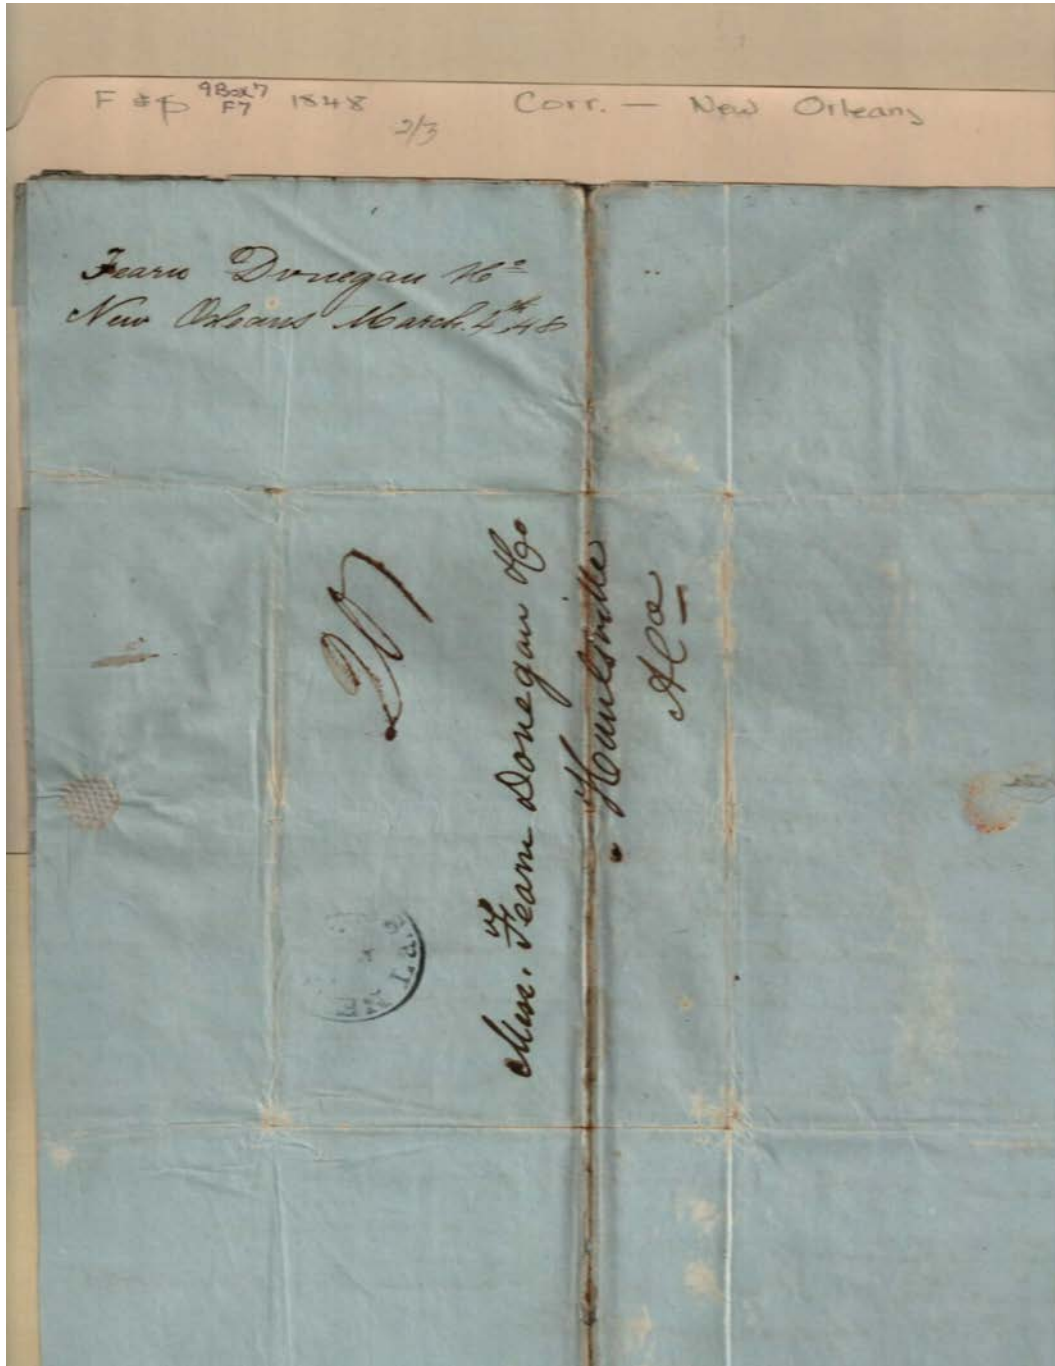 9Box7
F & P F7 1848 Corr. — New Orleans
2/3
Fearn Donegan & Co
New Orleans March. 4th 48
Mess. Fearn Donegan & Co
Huntsville
Ala